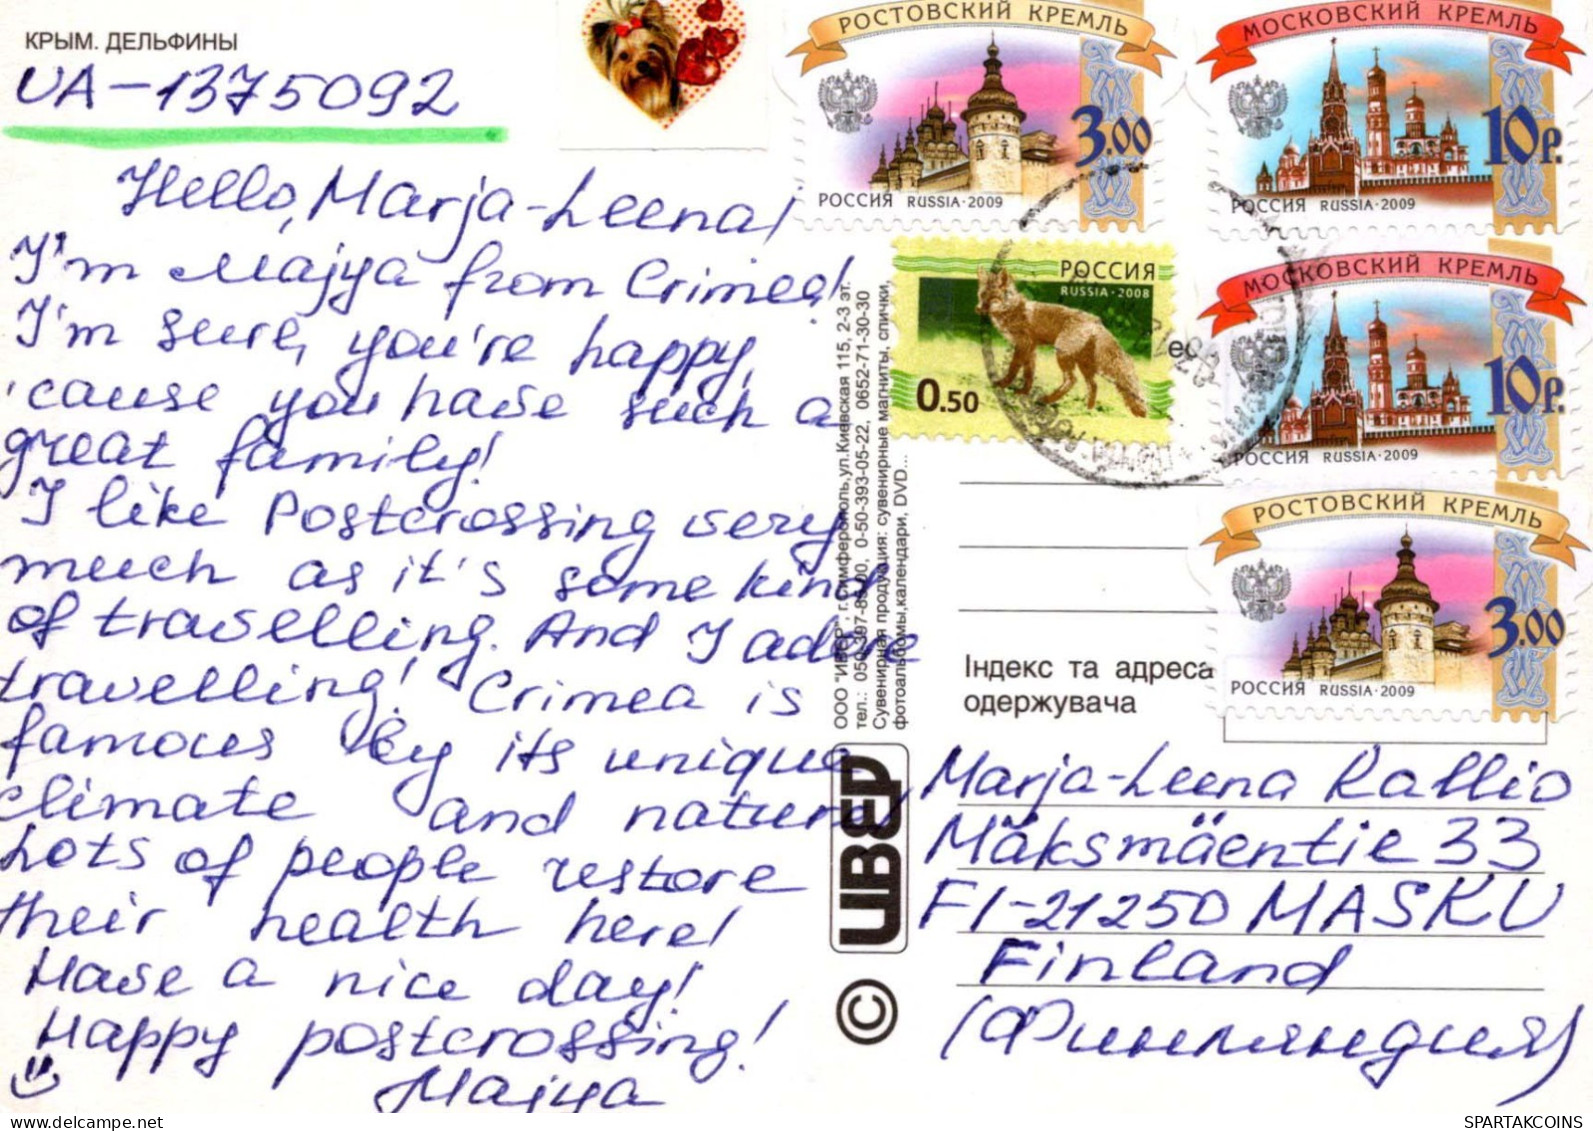 КРЫМ. ДЕЛЬФИНЫ
UA-1375092
Hello, Marja-Leena!
I'm Majya from Crimea!
I'm sure, you're happy,
'cause you have such a
great family!
I like Postcrossing very
much as it's some kind
of travelling. And I adore
travelling! Crimea is
famous by its unique
climate and nature!
Lots of people restore
their health here!
Have a nice day!
Happy postcrossing!
Majya
ООО "ИВЕР", г.Симферополь, ул.Киевская 115, 2-3 эт.
тел.: 0-50-393-05-22, 0652-71-30-30
Сувенирная продукция: сувенирные магниты, спички,
фотоальбомы,календари, DVD...
ИВЕР
©
РОСТОВСКИЙ КРЕМЛЬ
3.00
РОССИЯ RUSSIA·2009
МОСКОВСКИЙ КРЕМЛЬ
10Р.
РОССИЯ RUSSIA·2009
РОССИЯ
RUSSIA·2008
0.50
МОСКОВСКИЙ КРЕМЛЬ
10Р.
РОССИЯ RUSSIA·2009
РОСТОВСКИЙ КРЕМЛЬ
3.00
РОССИЯ RUSSIA·2009
Індекс та адреса
одержувача
Marja-Leena Kallio
Mäksmäentie 33
FI-21250 MASKU
Finland
(Финляндия)
SPARTAKCOINS